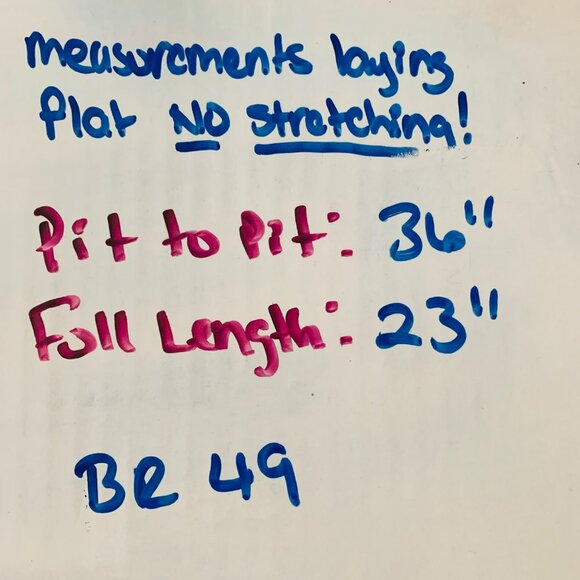 measurements laying
flat NO stretching!
Pit to Pit: 36"
Full Length: 23"
BR 49